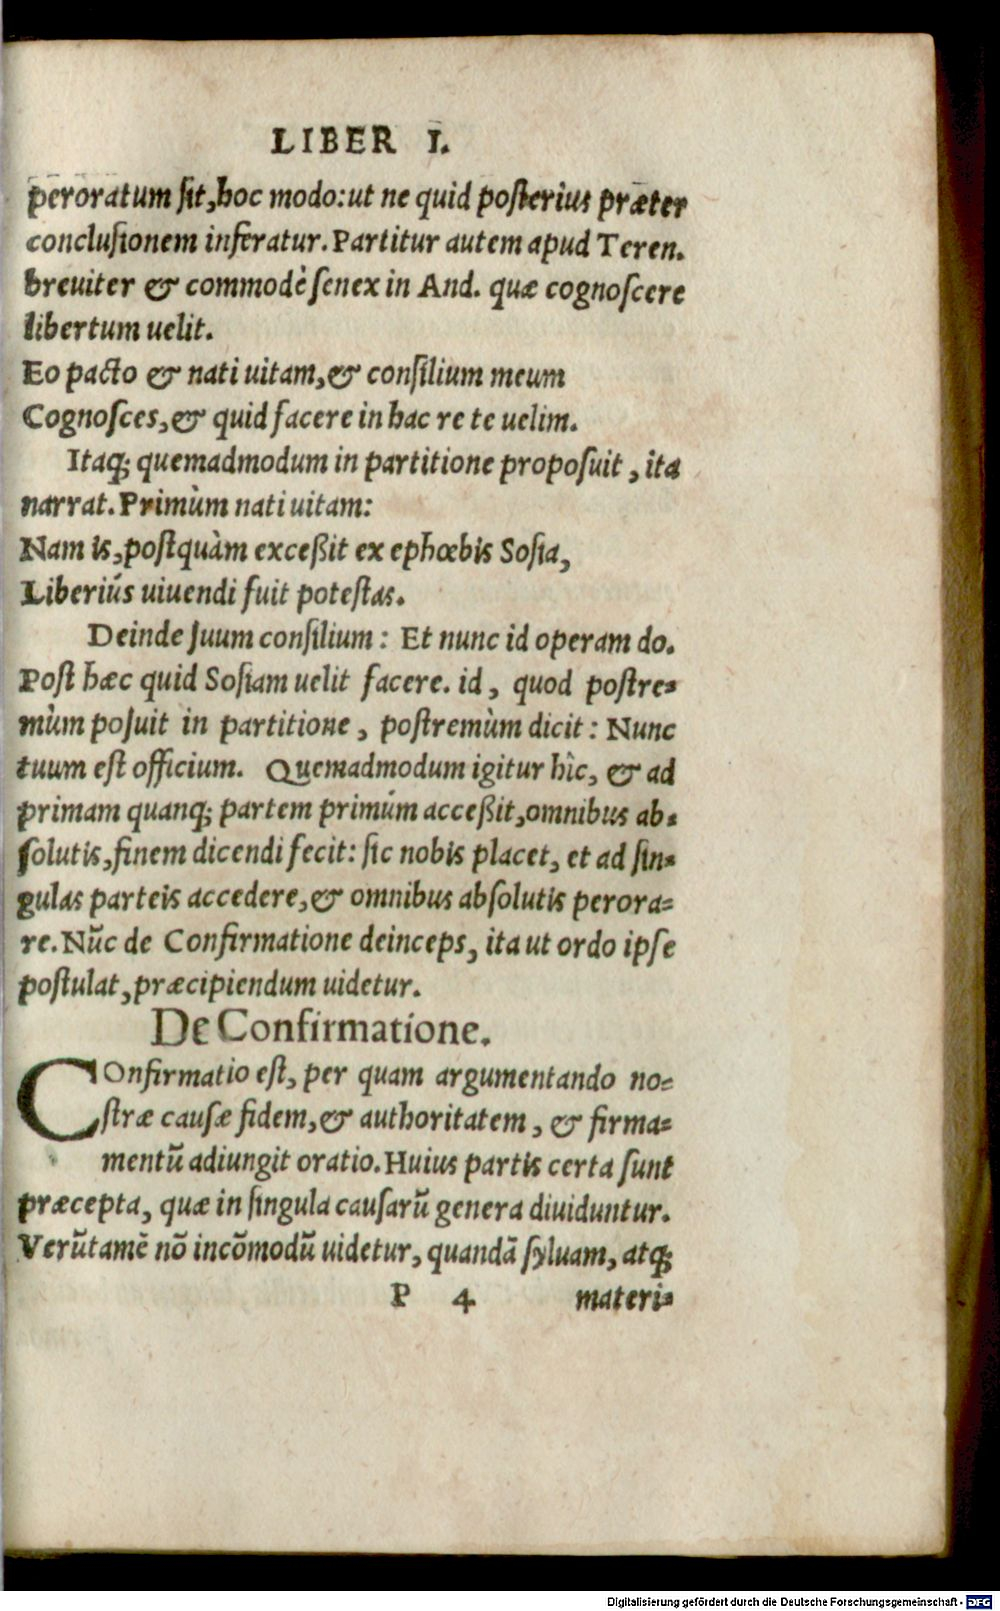 LIBER I.
peroratum sit, hoc modo: ut ne quid posterius præter
conclusionem inferatur. Partitur autem apud Teren.
breuiter & commodè senex in And. quæ cognoscere
libertum uelit.
Eo pacto & nati uitam, & consilium meum
Cognosces, & quid facere in hac re te uelim.
Itaq; quemadmodum in partitione proposuit, ita
narrat. Primùm nati uitam:
Nam is, postquàm exceßit ex ephœbis Sosia,
Liberiús uiuendi fuit potestas.
Deinde suum consilium: Et nunc id operam do.
Post hæc quid Sosiam uelit facere. id, quod postre-
mùm posuit in partitione, postremùm dicit: Nunc
tuum est officium. Quemadmodum igitur hîc, & ad
primam quanq; partem primúm acceßit, omnibus ab-
solutis, finem dicendi fecit: sic nobis placet, et ad sin-
gulas parteis accedere, & omnibus absolutis perora-
re. Nũc de Confirmatione deinceps, ita ut ordo ipse
postulat, præcipiendum uidetur.
De Confirmatione.
COnfirmatio est, per quam argumentando no-
stræ causæ fidem, & authoritatem, & firma-
mentũ adiungit oratio. Huius partis certa sunt
præcepta, quæ in singula causarũ genera diuiduntur.
Verũtamẽ nõ incõmodũ uidetur, quandã syluam, atq;
P 4 materi-
Digitalisierung gefördert durch die Deutsche Forschungsgemeinschaft - DFG